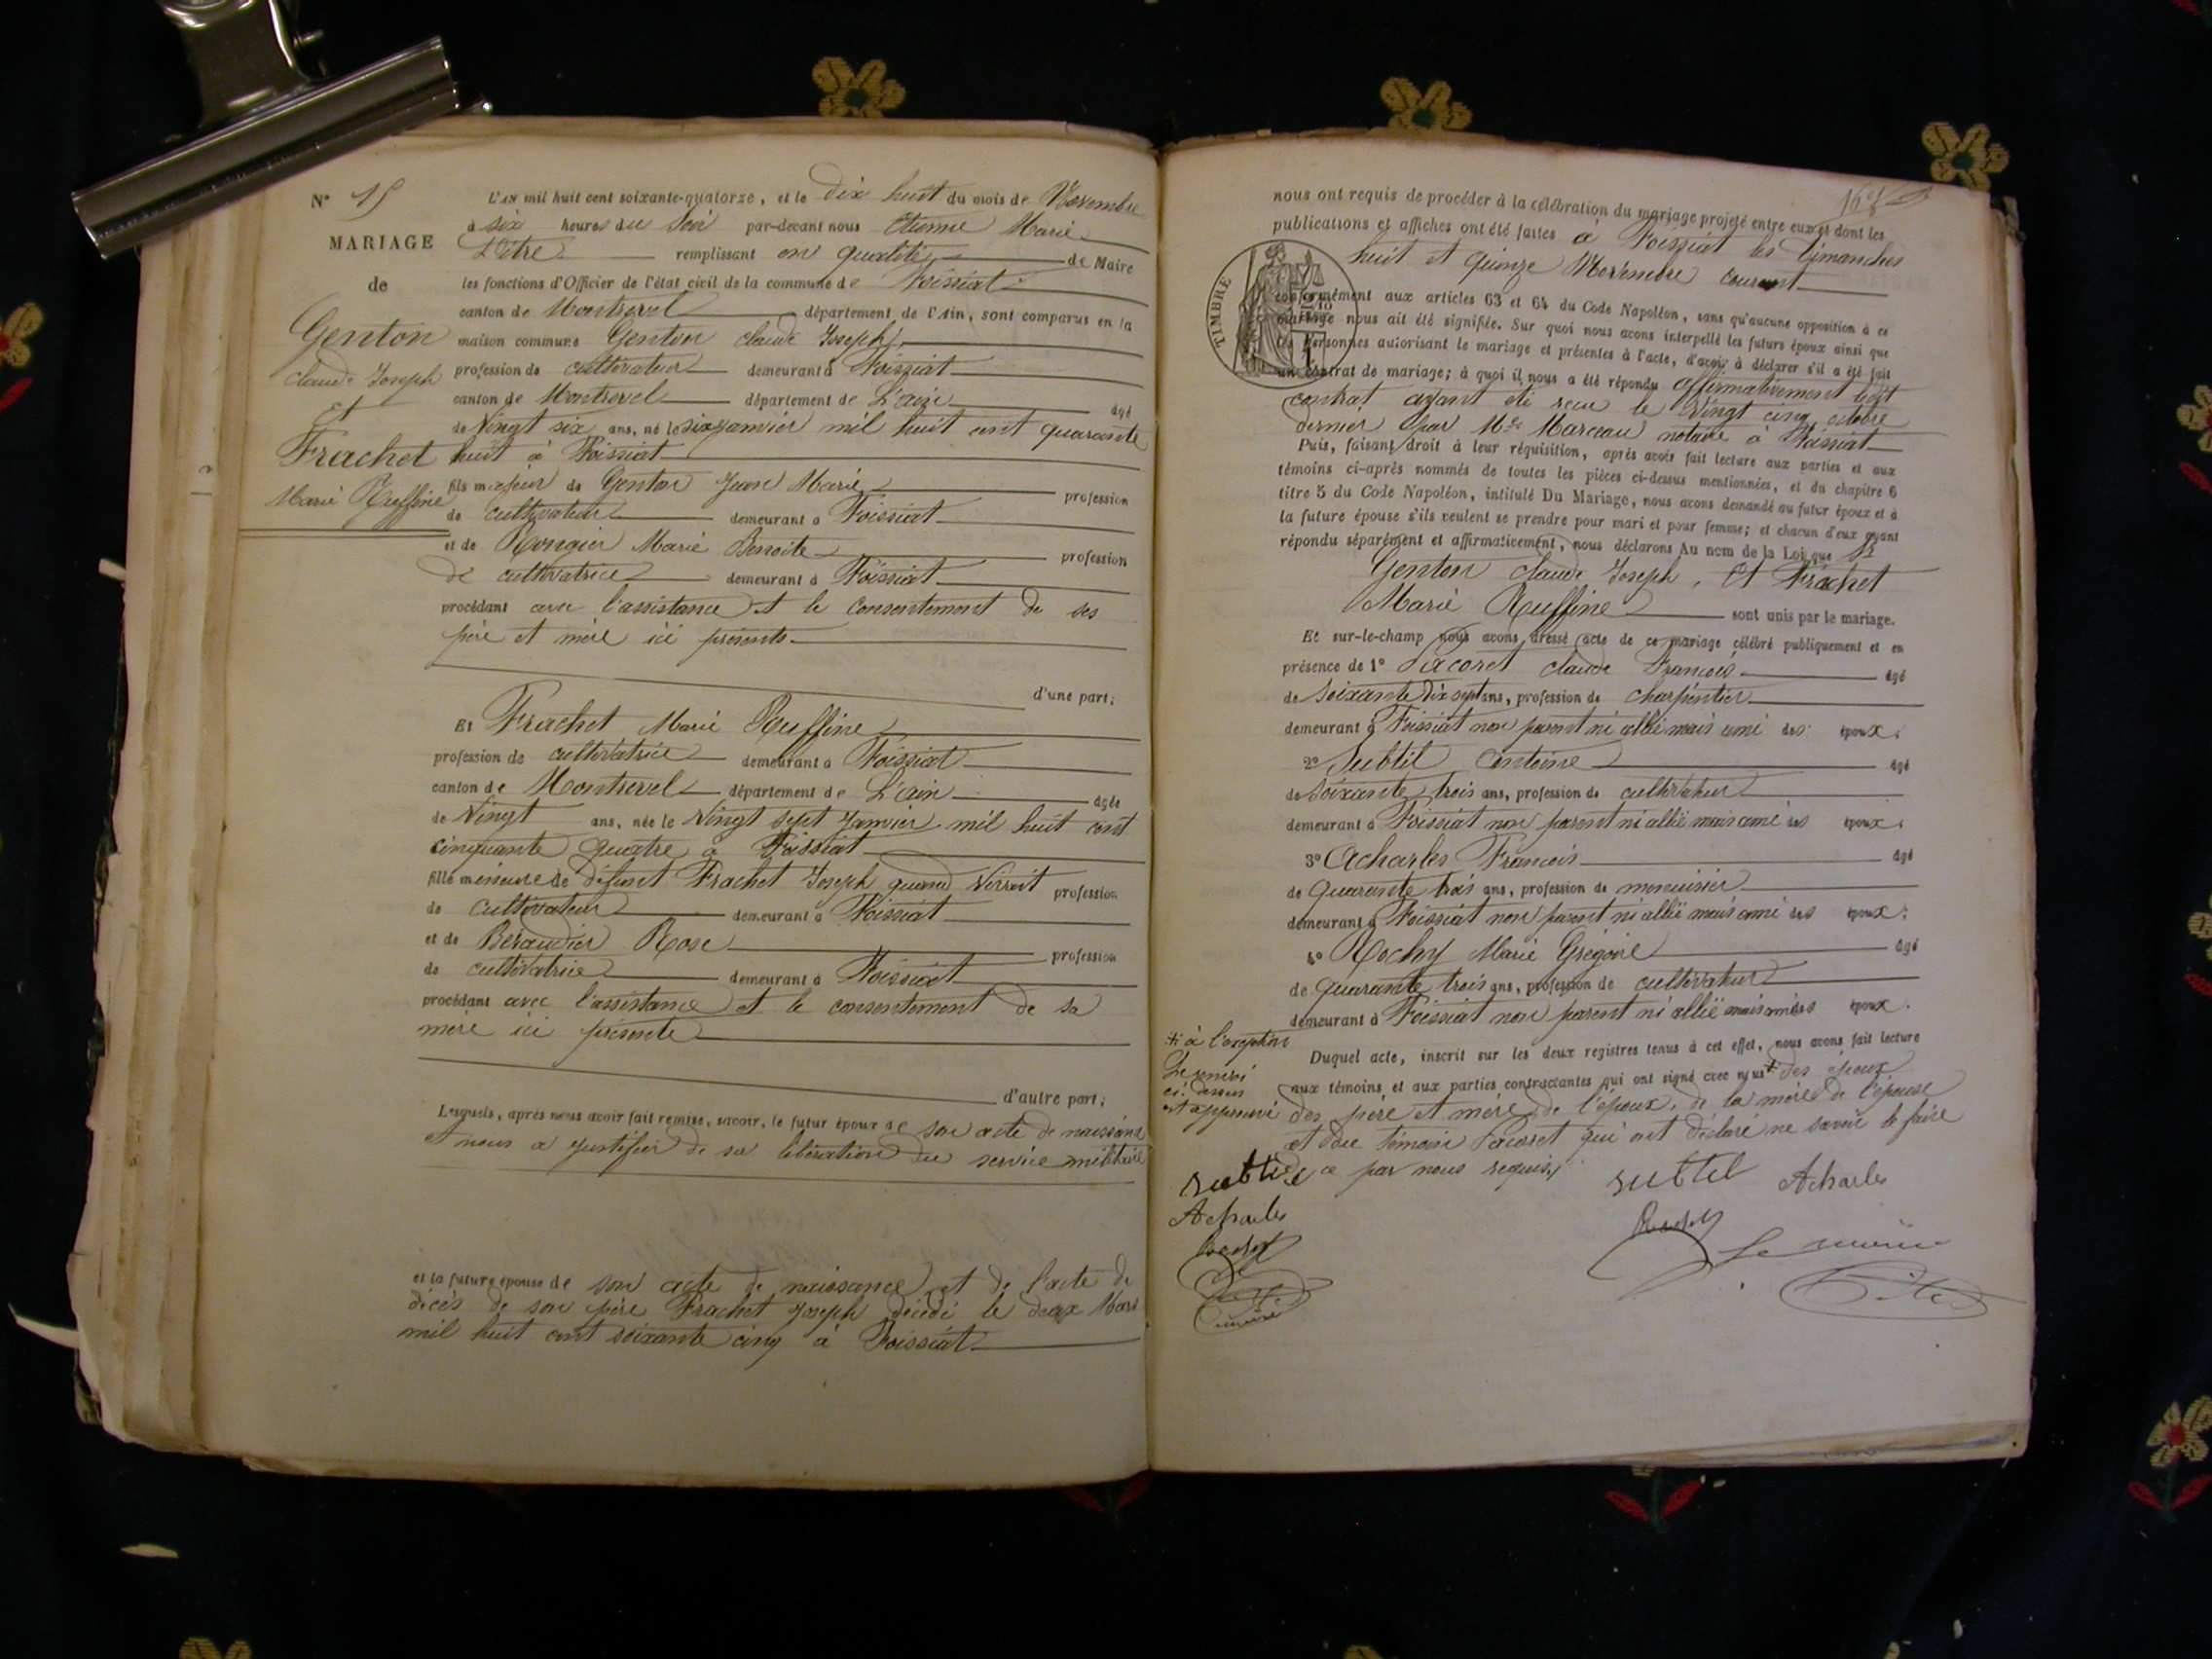 N° 15
MARIAGE
de
Genton
claude Joseph
et
Frachet
Marie Ruffine
L'AN mil huit cent soixante-quatorze, et le dix huit du mois de Novembre
à six heures du soir par-devant nous Etienne Marie
remplissant en qualité de Maire
les fonctions d'Officier de l'état civil de la commune de Foissiat
canton de Montrevel département de l'Ain, sont comparus en la
maison commune Genton claude Joseph
profession de cultivateur demeurant à Foissiat
canton de Montrevel département de L'ain âgé
de Vingt six ans, né le six janvier mil huit cent quarante
huit à Foissiat
fils majeur de Genton Jean Marie profession
de cultivateur demeurant à Foissiat
et de Rongier Marie Benoite profession
de cultivatrice demeurant à Foissiat
procédant avec l'assistance et le consentement de ses
père et mère ici présents
d'une part;
Et Frachet Marie Ruffine
profession de cultivatrice demeurant à Foissiat
canton de Montrevel département de L'ain âgée
de Vingt ans, née le Vingt sept Janvier mil huit cent
cinquante quatre à Foissiat
fille mineure de défunt Frachet Joseph quand Vivait profession
de cultivateur demeurant à Foissiat
et de Beraudier Rose profession
de cultivatrice demeurant à Foissiat
procédant avec l'assistance et le consentement de sa
mère ici présente
d'autre part;
Lesquels, après nous avoir fait remise, savoir, le futur époux de son acte de naissance
et nous a justifier de sa libération du service militaire
et la future épouse de son acte de naissance et de l'acte de
décès de son père Frachet Joseph décédé le deux Mars
mil huit cent soixante cinq à Foissiat
nous ont requis de procéder à la célébration du mariage projeté entre eux et dont les
publications et affiches ont été faites à Foissiat les Dimanches
huit et quinze Novembre courant
TIMBRE
conformément aux articles 63 et 64 du Code Napoléon, sans qu'aucune opposition à ce
mariage nous ait été signifiée. Sur quoi nous avons interpellé les futurs époux ainsi que
les Personnes autorisant le mariage et présentes à l'acte, d'avoir à déclarer s'il a été fait
un contrat de mariage; à quoi il nous a été répondu affirmativement ledit
contrat ayant été reçu le Vingt cinq octobre
dernier par Me Marceau notaire à Foissiat
Puis, faisant droit à leur réquisition, après avoir fait lecture aux parties et aux
témoins ci-après nommés de toutes les pièces ci-dessus mentionnées, et du chapitre 6
titre 5 du Code Napoléon, intitulé Du Mariage, nous avons demandé au futur époux et à
la future épouse s'ils veulent se prendre pour mari et pour femme; et chacun d'eux ayant
répondu séparément et affirmativement, nous déclarons Au nom de la Loi que
Genton claude Joseph, et Frachet
Marie Ruffine sont unis par le mariage.
Et sur-le-champ nous avons dressé acte de ce mariage célébré publiquement et en
présence de 1° claude François âgé
de soixante dix sept ans, profession de charpentier
demeurant à Foissiat non parent ni allié mais ami des époux;
2° Subtil Antoine âgé
de soixante trois ans, profession de cultivateur
demeurant à Foissiat non parent ni allié mais ami des époux;
3° Acharles François âgé
de quarante trois ans, profession de menuisier
demeurant à Foissiat non parent ni allié mais ami des époux;
4° Rochy Marie Grégoire âgé
de quarante trois ans, profession de cultivateur
demeurant à Foissiat non parent ni allié mais ami des époux.
Duquel acte, inscrit sur les deux registres tenus à cet effet, nous avons fait lecture
aux témoins et aux parties contractantes qui ont signé avec nous des époux
des père et mère de l'époux, de la mère de l'épouse
et du témoin qui ont déclaré ne savoir le faire
de ce par nous requis,
à l'exception
Le renvoi
ci dessus
est approuvé
subtil
Acharles
Rochy
subtil Acharles
Rochy
Le maire